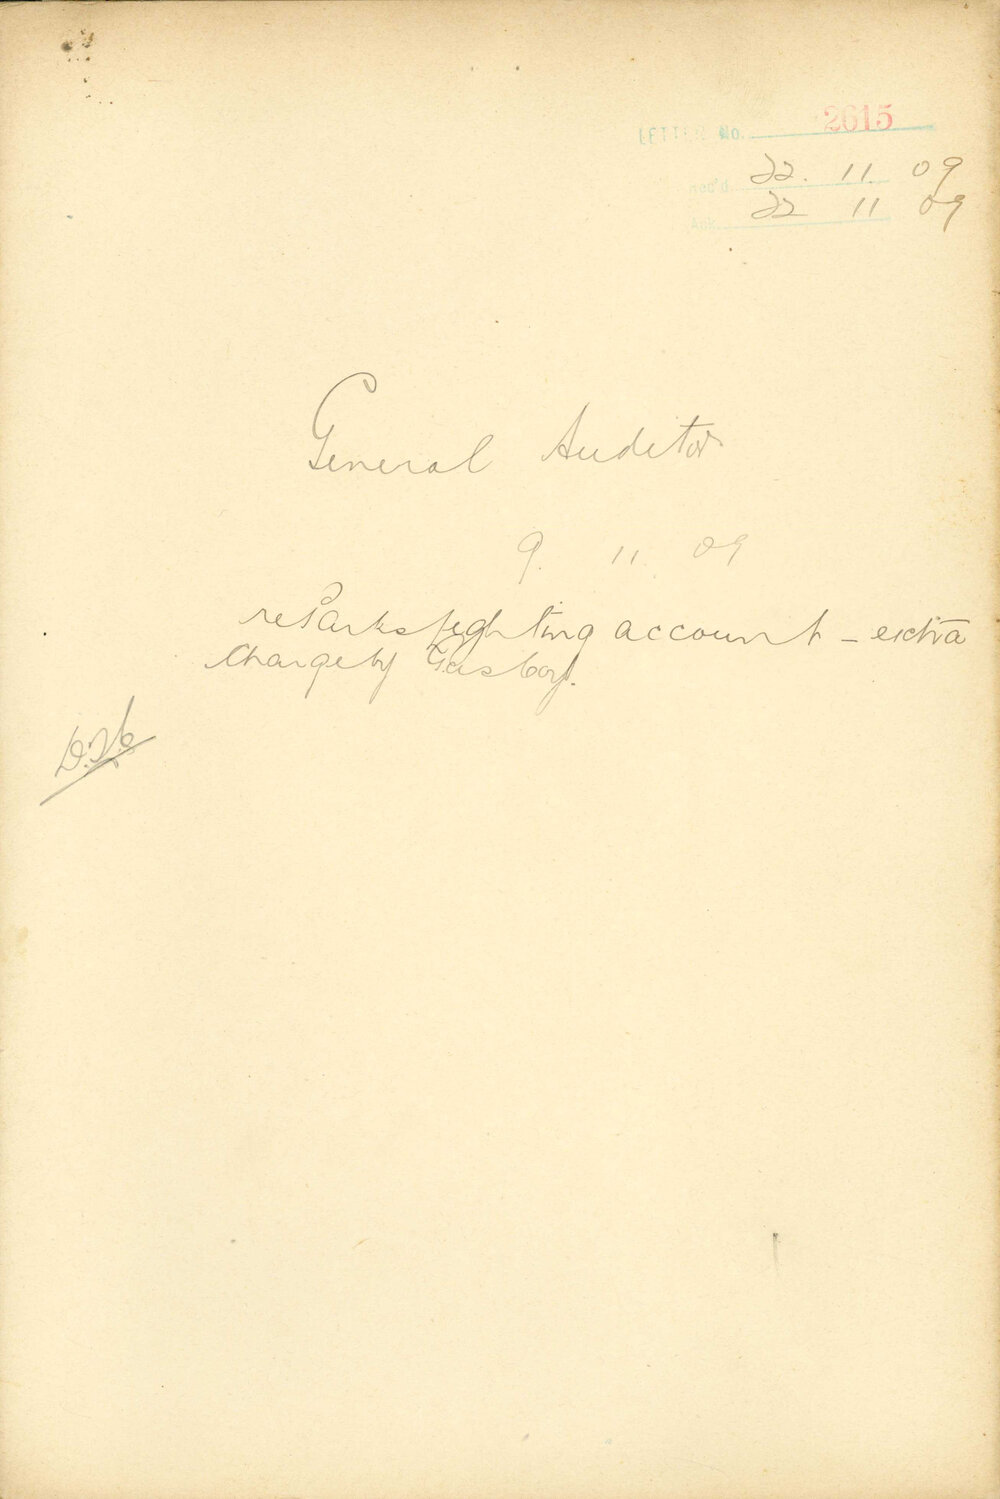 LETTER No. 2615
Rec'd. 22. 11. 09
Ack. 22 11 09
General Auditor
9. 11. 09
re Parks lighting account - extra
Charge by Gas Coy.